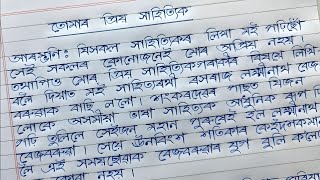 তোমাৰ প্ৰিয় সাহিত্যিক
আৰম্ভণি: যিসকল সাহিত্যিকৰ লিখা মই পঢ়িছোঁ
সেই সকলৰ কোনোজনেই মোৰ অপ্ৰিয় নহয়।
তথাপিও মোৰ প্ৰিয় সাহিত্যিকগৰাকীৰ বিষয়ে লিখিব
বুলি দিয়াত মই সাহিত্যৰথী ৰসৰাজ লক্ষ্মীনাথ বেজ
বৰুৱাক বাছি ললো। শংকৰদেৱৰ পাছত যিজন
লোকে অসমীয়া ভাষা সাহিত্যক আধুনিক ৰূপ দি
গঢ়ি তুলিলে সেইজন মহান পুৰুষেই হ'ল লক্ষ্মীনাথ
বেজবৰুৱা। সেয়ে ঊনবিংশ শতিকাৰ
এই সময়ছোৱাক বেজবৰুৱাৰ যুগ বুলি কলেও
নহয়।